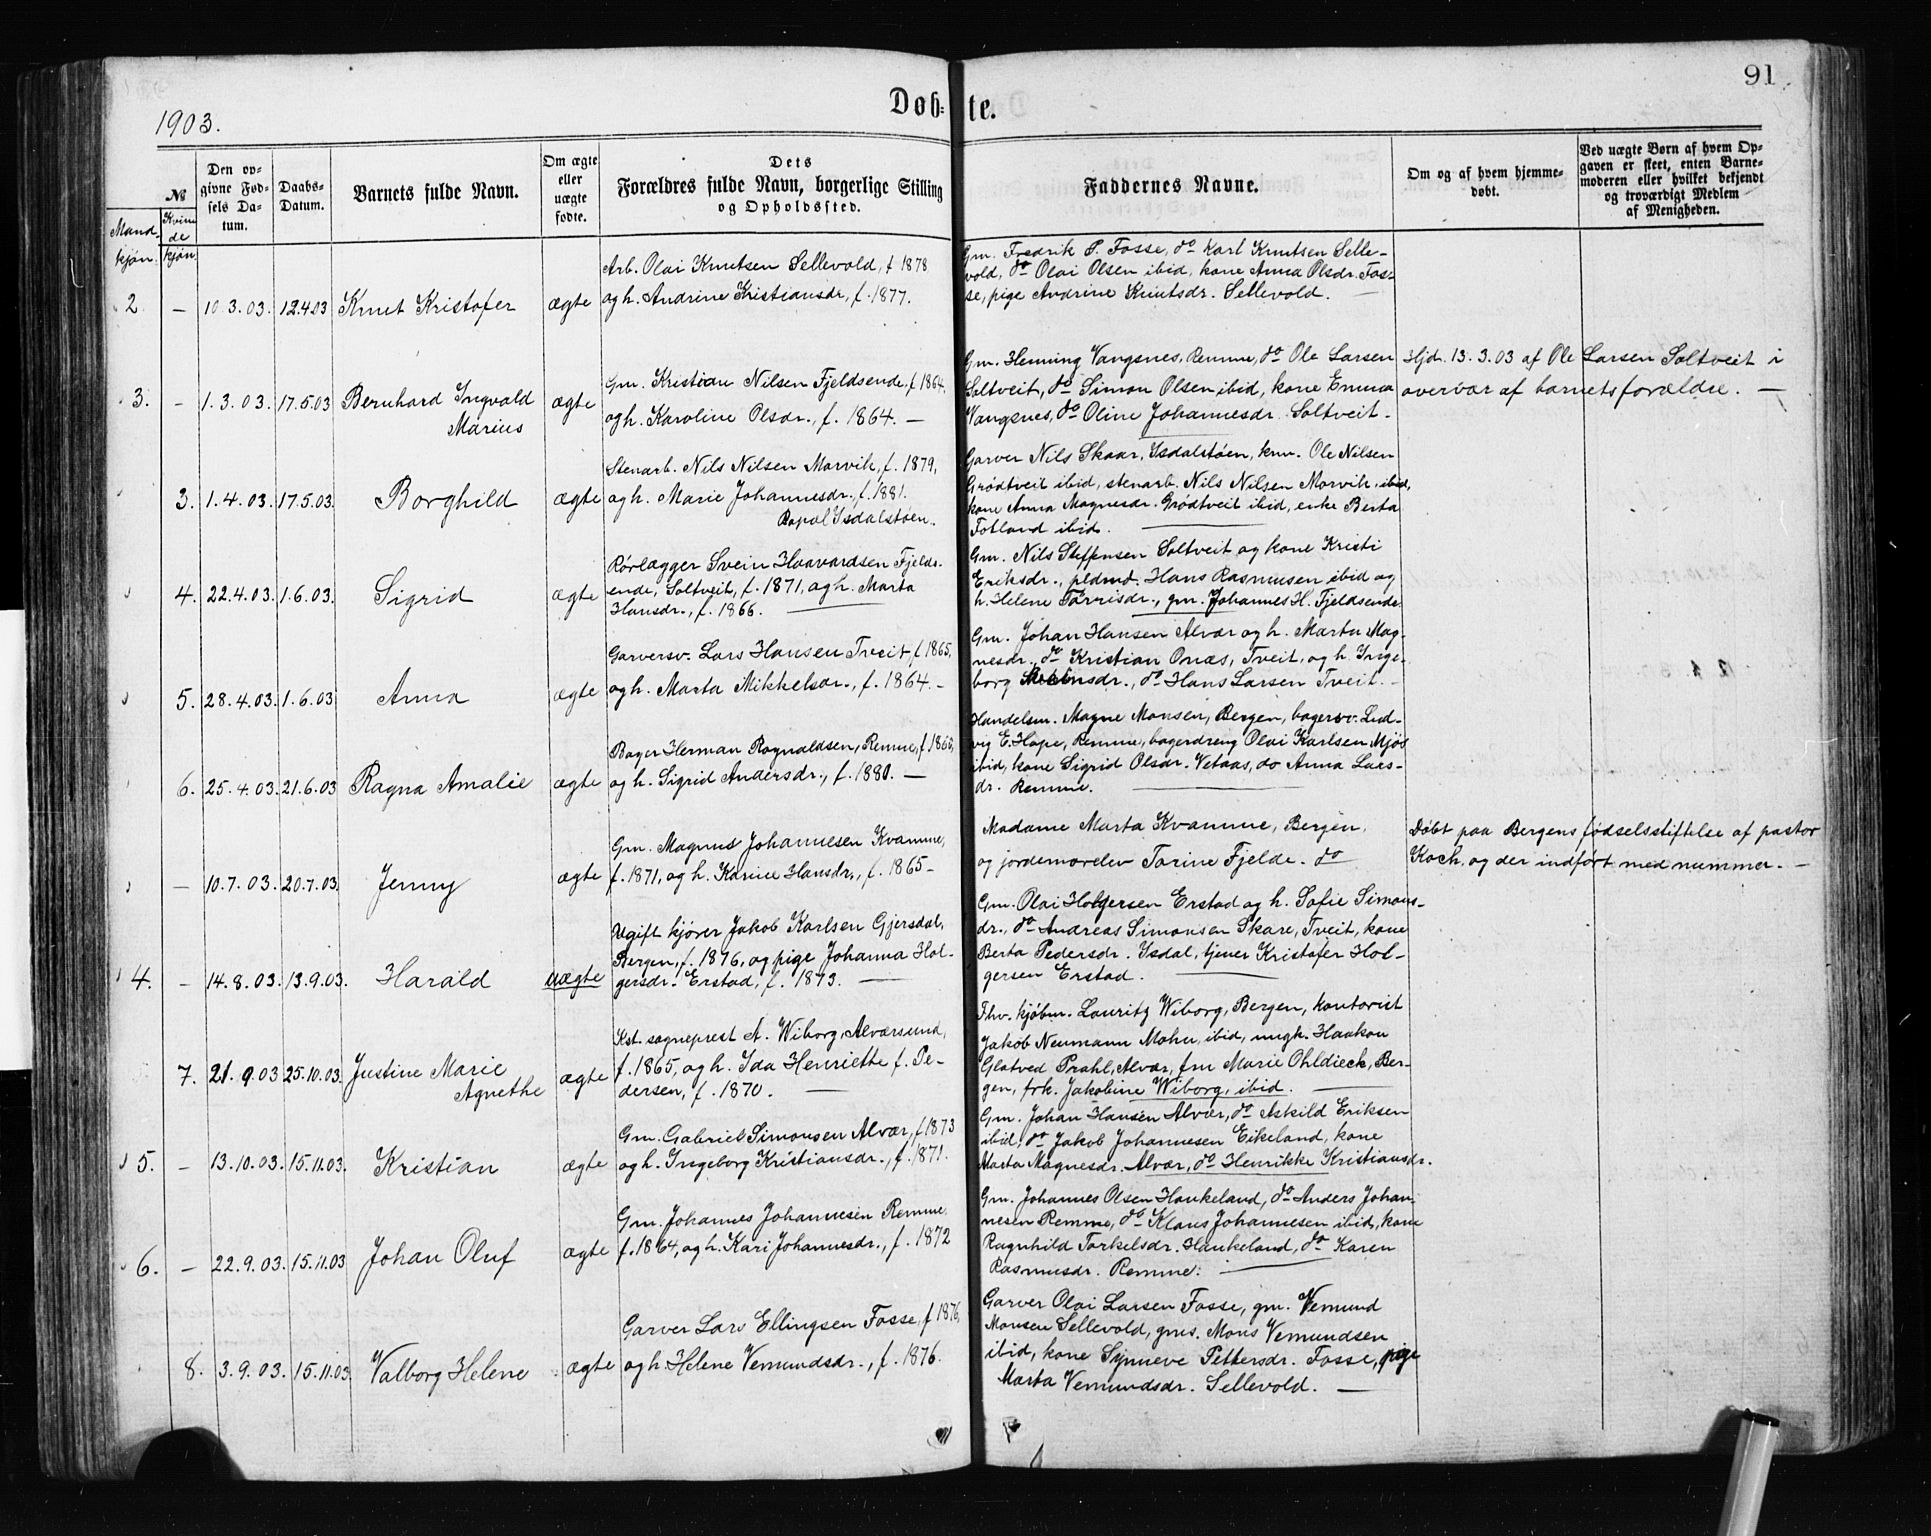 91
1903.
Døb-te.
№
Mand-
kjøn.
Kvin
de
kjøn
Den op-
givne Fød-
sels Da-
tum.
Daabs-
Datum.
Barnets fulde Navn.
Om ægte
eller
uægte
fødte.
Dets
Forældres fulde Navn, borgerlige Stilling
og Opholdssted.
Faddernes Navne.
Om og af hvem hjemme-
døbt.
Ved uægte Børn af hvem Op-
gaven er skeet, enten Barne-
moderen eller hvilket bekjendt
og troværdigt Medlem
af Menigheden.
2 – 10.3.03. 12.4.03 Knut Kristofer ægte
Arb. Olai Knutsen Sellevold, f 1878
og h. Andrine Kristiansdr., f. 1877.
Gm. Fredrik P. Fosse, do Karl Knutsen Selle-
vold, do Olai Olsen ibid, kone Anna Olsdr. Fos-
se, pige Andrine Knutsdr. Sellevold. –
3. – 1.3.03. 17.5.03 Bernhard Ingvald
Marius
ægte
Gm. Kristian Nilsen Fjeldsende, f 1864,
og h. Karoline Olsdr., f. 1864. –
Gm. Henning Vangsnes, Remme, do Ole Larsen
Soltveit, do Simon Olsen ibid, kone Emma
Vangsnes, do Oline Johannesdr. Soltveit –
Hjd. 13.3.03 af Ole Larsen Soltveit i
overvær af barnets forældre. –
3. 1.4.03. 17.5.03. Borghild ægte
Stenarb. Nils Nilsen Morvik, f. 1879,
og h. Marie Johannesdr., f. 1881.
Isdalstøen.
Garver Nils Skaar, Isdalstøen, knm. Ole Nilsen
Grødtveit ibid, stenarb. Nils Nilsen Morvik, ibid,
kone Anna Magnesdr. Grødtveit ibid, enke Berta
Fotland ibid.
4. 22.4.03. 1.6.03. Sigrid ægte
Rørlægger Svein Haavardsen Fjelds-
ende, Soltveit, f. 1871, og h. Marta
Hansdr., f. 1866.
Gm. Nils Steffensen Soltveit og kone Kristi
Eriksdr., pldmd. Hans Rasmusen ibid og
h. Helene Torrisdr., gm. Johannes H. Fjeldsende.
5. 28.4.03. 1.6.03 Anna ægte
Garversv. Lars Hansen Tveit, f 1865,
og h. Marta Mikkelsdr., f. 1864. –
Gm. Johan Hansen Alvær og h. Marta Mag-
nesdr., do Kristian Onæs, Tveit, og h. Inge-
borg dr., do Hans Larsen Tveit. –
6. 25.4.03. 21.6.03 Ragna Amalie ægte
Bager Herman Ragnaldsen, Remme, f 1866,
og h. Sigrid Andersdr., f. 1880. –
Handelsm. Magne Monsen, Bergen, bagersv. Lud-
vig E. Hope, Remme, bagerdreng Olai Karlsen Mjøs
ibid, kone Sigrid Olsdr. Vetaas, do Anna Lars-
dr. Remme.
– 10.7.03. 20.7.03. Jenny ægte
Gm. Magnus Johannesen Kvamme,
f. 1871, og h. Karine Hansdr., f. 1865 –
Madame Marta Kvamme, Bergen,
og jordemorelev Torine Fjelde. do
Døbt paa Bergens fødselsstiftelse af pastor
Koch og der indført med nummer. –
4. – 14.8.03. 13.9.03. Harald uægte
Ugift kjører Jakob Karlsen Gjersdal,
Bergen, f. 1876, og pige Johanna Hol-
gersdr. Erstad, f. 1873. –
Gm. Olai Holgersen Erstad og h. Sofie Simons-
dr., do Andreas Simonsen Skare, Tveit, kone
Berta Pedersdr. Isdal, tjener Kristofer Hol-
gersen Erstad.
7. 21.9.03 25.10.03. Justine Marie
Agnethe
ægte
Kst. sogneprest A. Wiborg, Alværsund,
f. 1865, og h. Ida Henriette f. Pe-
dersen, f. 1870. –
Fhv. kjøbm. Lauritz Wiborg, Bergen, kontorist
Jakob Neumann Mohn, ibid, ungk. Haakon
Glatved Prahl, Alvær, fru Marie Ohldieck, Ber-
gen, frk. Jakobine Wiborg, ibid.
5. – 13.10.03. 15.11.03. Kristian ægte
Gm. Gabriel Simonsen Alvær, f 1873
og h. Ingeborg Kristiansdr., f. 1871.
Gm. Johan Hansen Alvær, do Askild Eriksen
ibid, do Jakob Johannesen Eikeland, kone
Marta Magnesdr. Alvær, do Henrikke Kristiansdr.
6. – 22.9.03. 15.11.03 Johan Oluf ægte
Gm. Johannes Johannesen Remme,
f. 1864, og h. Kari Johannesdr., f. 1872
Gm. Johannes Olsen Haukeland, do Anders Johan-
nesen Remme, do Klaus Johannesen ibid, kone
Ragnhild Torkelsdr. Haukeland, do Karen
Rasmusdr. Remme.
8. 3.9.03. 15.11.03. Valborg Helene ægte
Garver Lars Ellingsen Fosse, f 1876,
og h. Helene Vemundsdr., f. 1876.
Garver Olai Larsen Fosse, gm. Vemund
Monsen Sellevold, gms. Mons Vemundsen
ibid, kone Synneve Pettersdr. Fosse, pige
Marta Vemundsdr. Sellevold. –